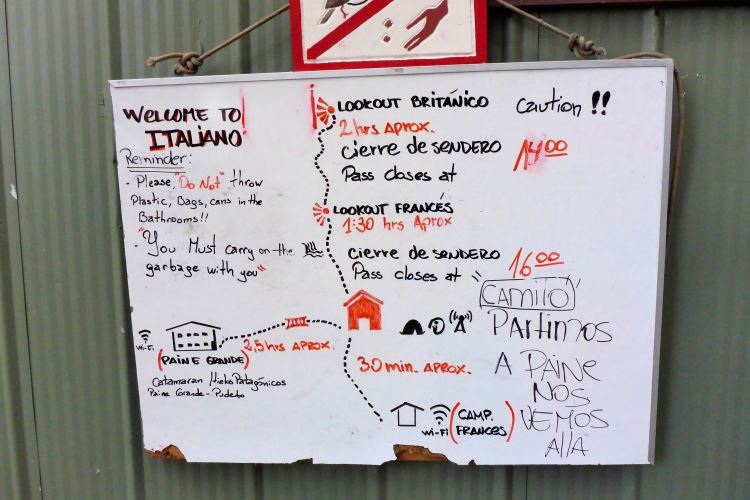 WELCOME TO
ITALIANO!
Reminder:
- Please, "Do Not" throw
Plastic, Bags, cans in the
Bathrooms!!
- "You Must carry on the
garbage with you"
LOOKOUT BRITÁNICO
2 hrs Aprox.
cierre de SENDERO
Pass closes at
14:00
Caution !!
LOOKOUT FRANCÉS
1:30 hrs Aprox
cierre de SENDERO
Pass closes at
16:00
"CAMILO"
PARTIMOS
A PAINE
NOS
VEMOS
ALLA
Wi-Fi
(PAINE GRANDE)
2,5 hrs APROX.
Catamaran Hielos Patagónicos
Paine Grande - Pudeto
30 min. APROX.
Wi-Fi
(CAMP.
FRANCES)